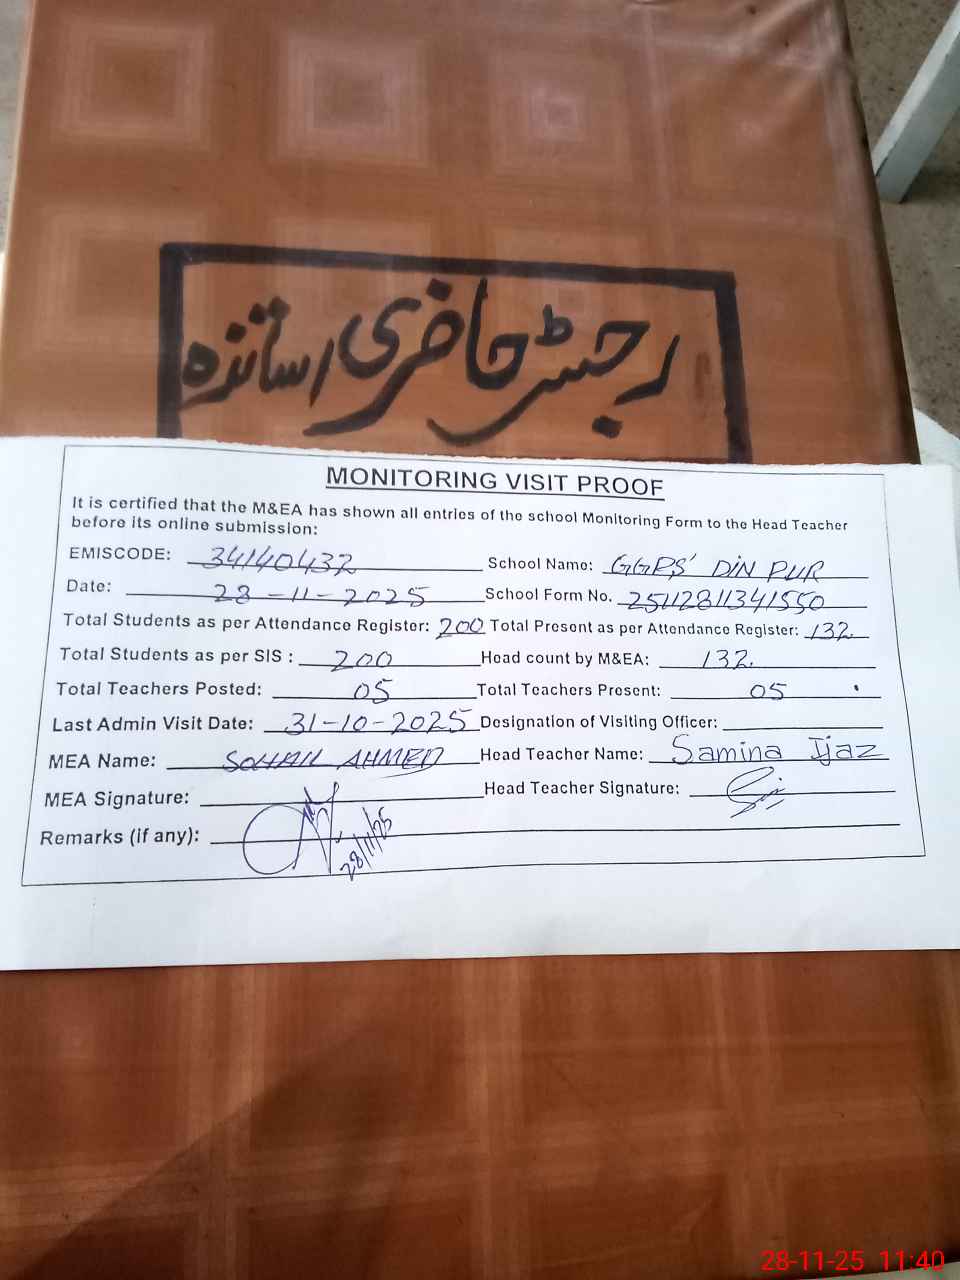 رجسٹر حاضری اساتذہ
MONITORING VISIT PROOF
It is certified that the M&EA has shown all entries of the school Monitoring Form to the Head Teacher
before its online submission:
EMISCODE: 34140432 School Name: GGPS DIN PUR
Date: 28-11-2025 School Form No. 25112811341550
Total Students as per Attendance Register: 200 Total Present as per Attendance Register: 132
Total Students as per SIS : 200 Head count by M&EA: 132.
Total Teachers Posted: 05 Total Teachers Present: 05
Last Admin Visit Date: 31-10-2025 Designation of Visiting Officer:
MEA Name: SOHAIL AHMED Head Teacher Name: Samina Ijaz
MEA Signature: Head Teacher Signature:
Remarks (if any): 28/11/25
28-11-25 11:40